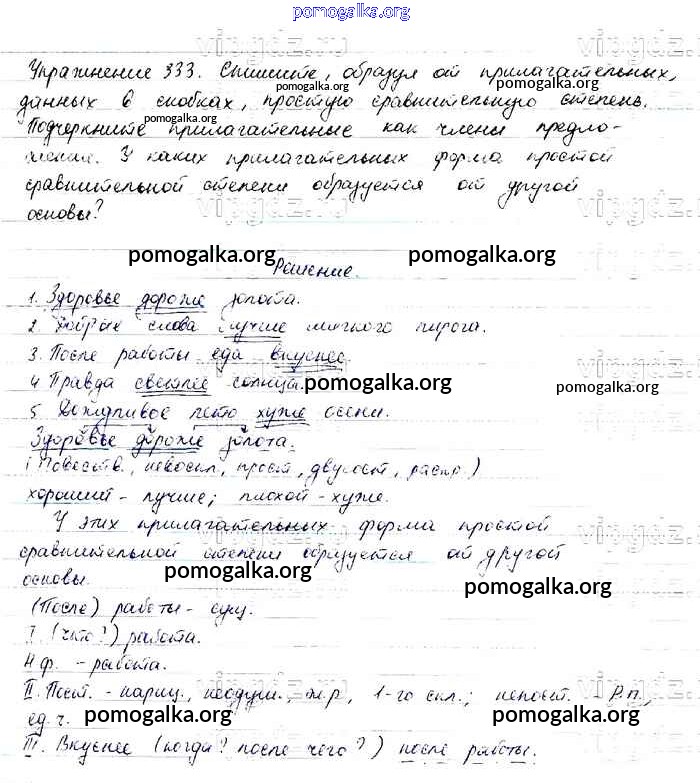 pomogalka.org
vipgdz.ru
Упражнение 333. Спишите, образуя от прилагательных,
pomogalka.org
данных в скобках, простую сравнительную степень.
pomogalka.org
Подчеркните прилагательные как члены предло-
жения. У каких прилагательных форма простой
сравнительной степени образуется от другой
основы?
vipgdz.ru
vipgdz.ru
pomogalka.org
pomogalka.org
Решение.
1. Здоровье дороже золота.
2. Добрые слова лучше мягкого пирога.
3. После работы еда вкуснее.
vipgdz.ru
4. Правда светлее солнца.
pomogalka.org
pomogalka.org
5. Дождливое лето хуже осени.
Здоровье дороже золота.
(Повеств., невоскл., прост., двусост., распр.)
хороший - лучше; плохой - хуже.
У этих прилагательных форма простой
vipgdz.ru
сравнительной степени образуется от другой
основы.
pomogalka.org
pomogalka.org
(После) работы - сущ.
I. (что?) работа.
Н.ф. - работа.
vipgdz.ru
II. Пост. - нариц., неодуш., ж.р., 1-го скл.; непост. Р.п.,
ед.ч.
pomogalka.org
pomogalka.org
III. Вкуснее (когда? после чего?) после работы.
vipgdz.ru